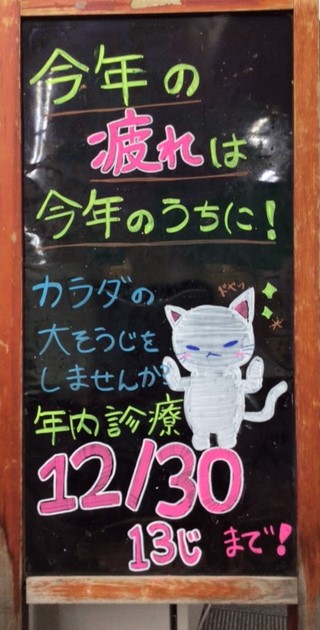 今年の
疲れは
今年のうちに!
カラダの
大そうじを
しませんか?
ドヤッ
年内診療
12/30
13じ まで!